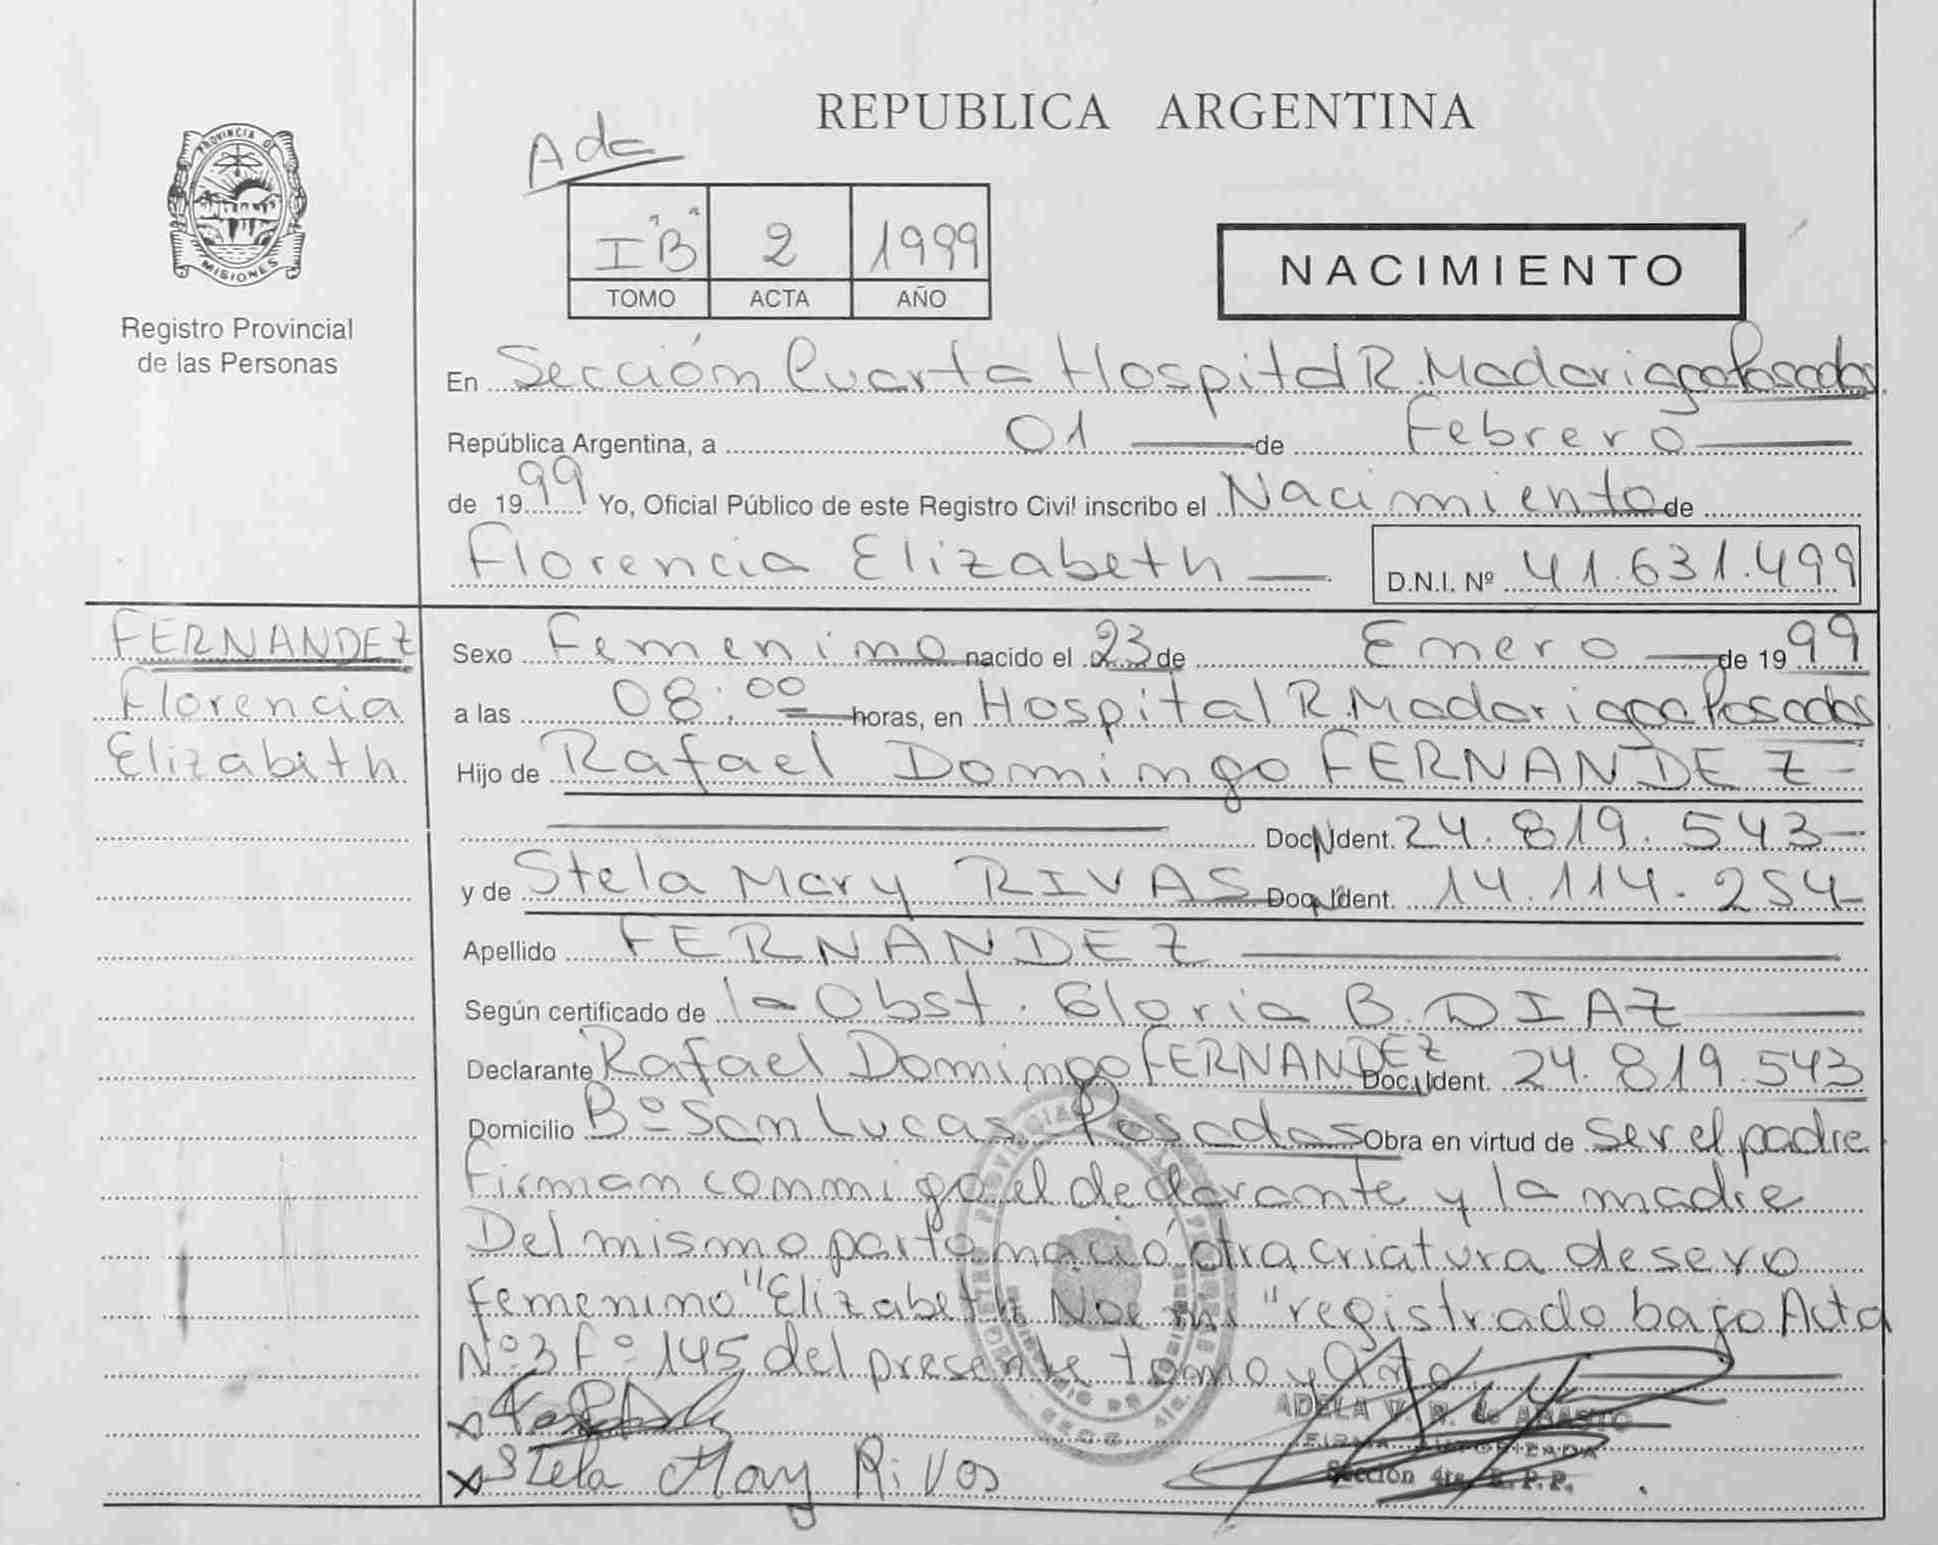 REPUBLICA ARGENTINA
PROVINCIA DE
MISIONES
Registro Provincial
de las Personas
Ada
I "B" 2 1999
TOMO ACTA AÑO
NACIMIENTO
En Sección Cuarta Hospital R. Madariaga Posadas
República Argentina, a 01 de Febrero
de 1999 Yo, Oficial Público de este Registro Civil inscribo el Nacimiento de
Florencia Elizabeth D.N.I. Nº 41.631.499
FERNANDEZ
Florencia
Elizabeth
Sexo Femenino nacido el 23 de Enero de 1999
a las 08:00 horas, en Hospital R. Madariaga Posadas
Hijo de Rafael Domingo FERNANDEZ
Doc. Ident. 24.819.543
y de Stela Mary RIVAS Doc. Ident. 14.114.254
Apellido FERNANDEZ
Según certificado de la Obst. Gloria B. DIAZ
Declarante Rafael Domingo FERNANDEZ Doc. Ident. 24.819.543
Domicilio Bº San Lucas Posadas Obra en virtud de ser el padre
Firman conmigo el declarante y la madre
Del mismo parto nació otra criatura de sexo
Femenino "Elizabeth Noemi" registrado bajo Acta
Nº 3 Fº 145 del presente tomo y año
Stela Mary Rivas
ADELA V. N. de
FIRMA AUTORIZADA
Sección 4ta. R.P.P.